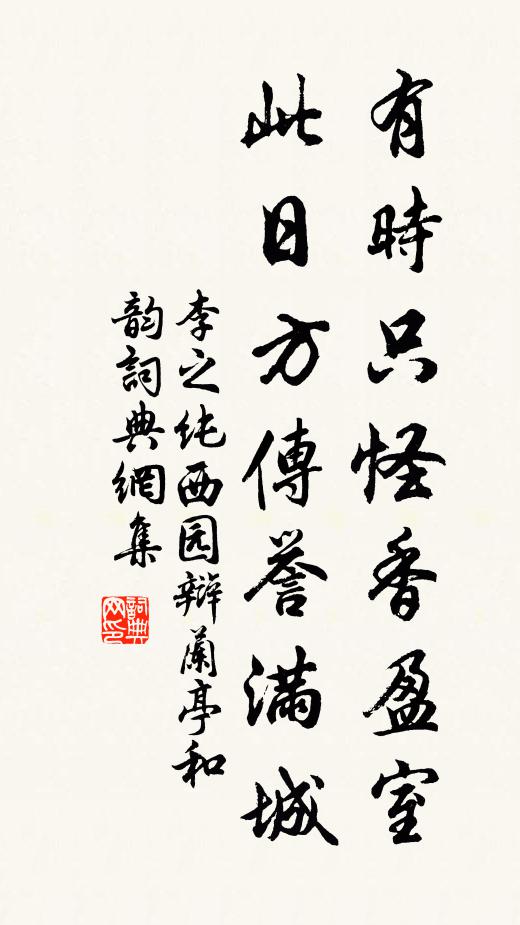 有時只怪香盈室
此日方傳譽滿城
李之纯西园辩蘭亭和
韵詞典網集
詞典网印